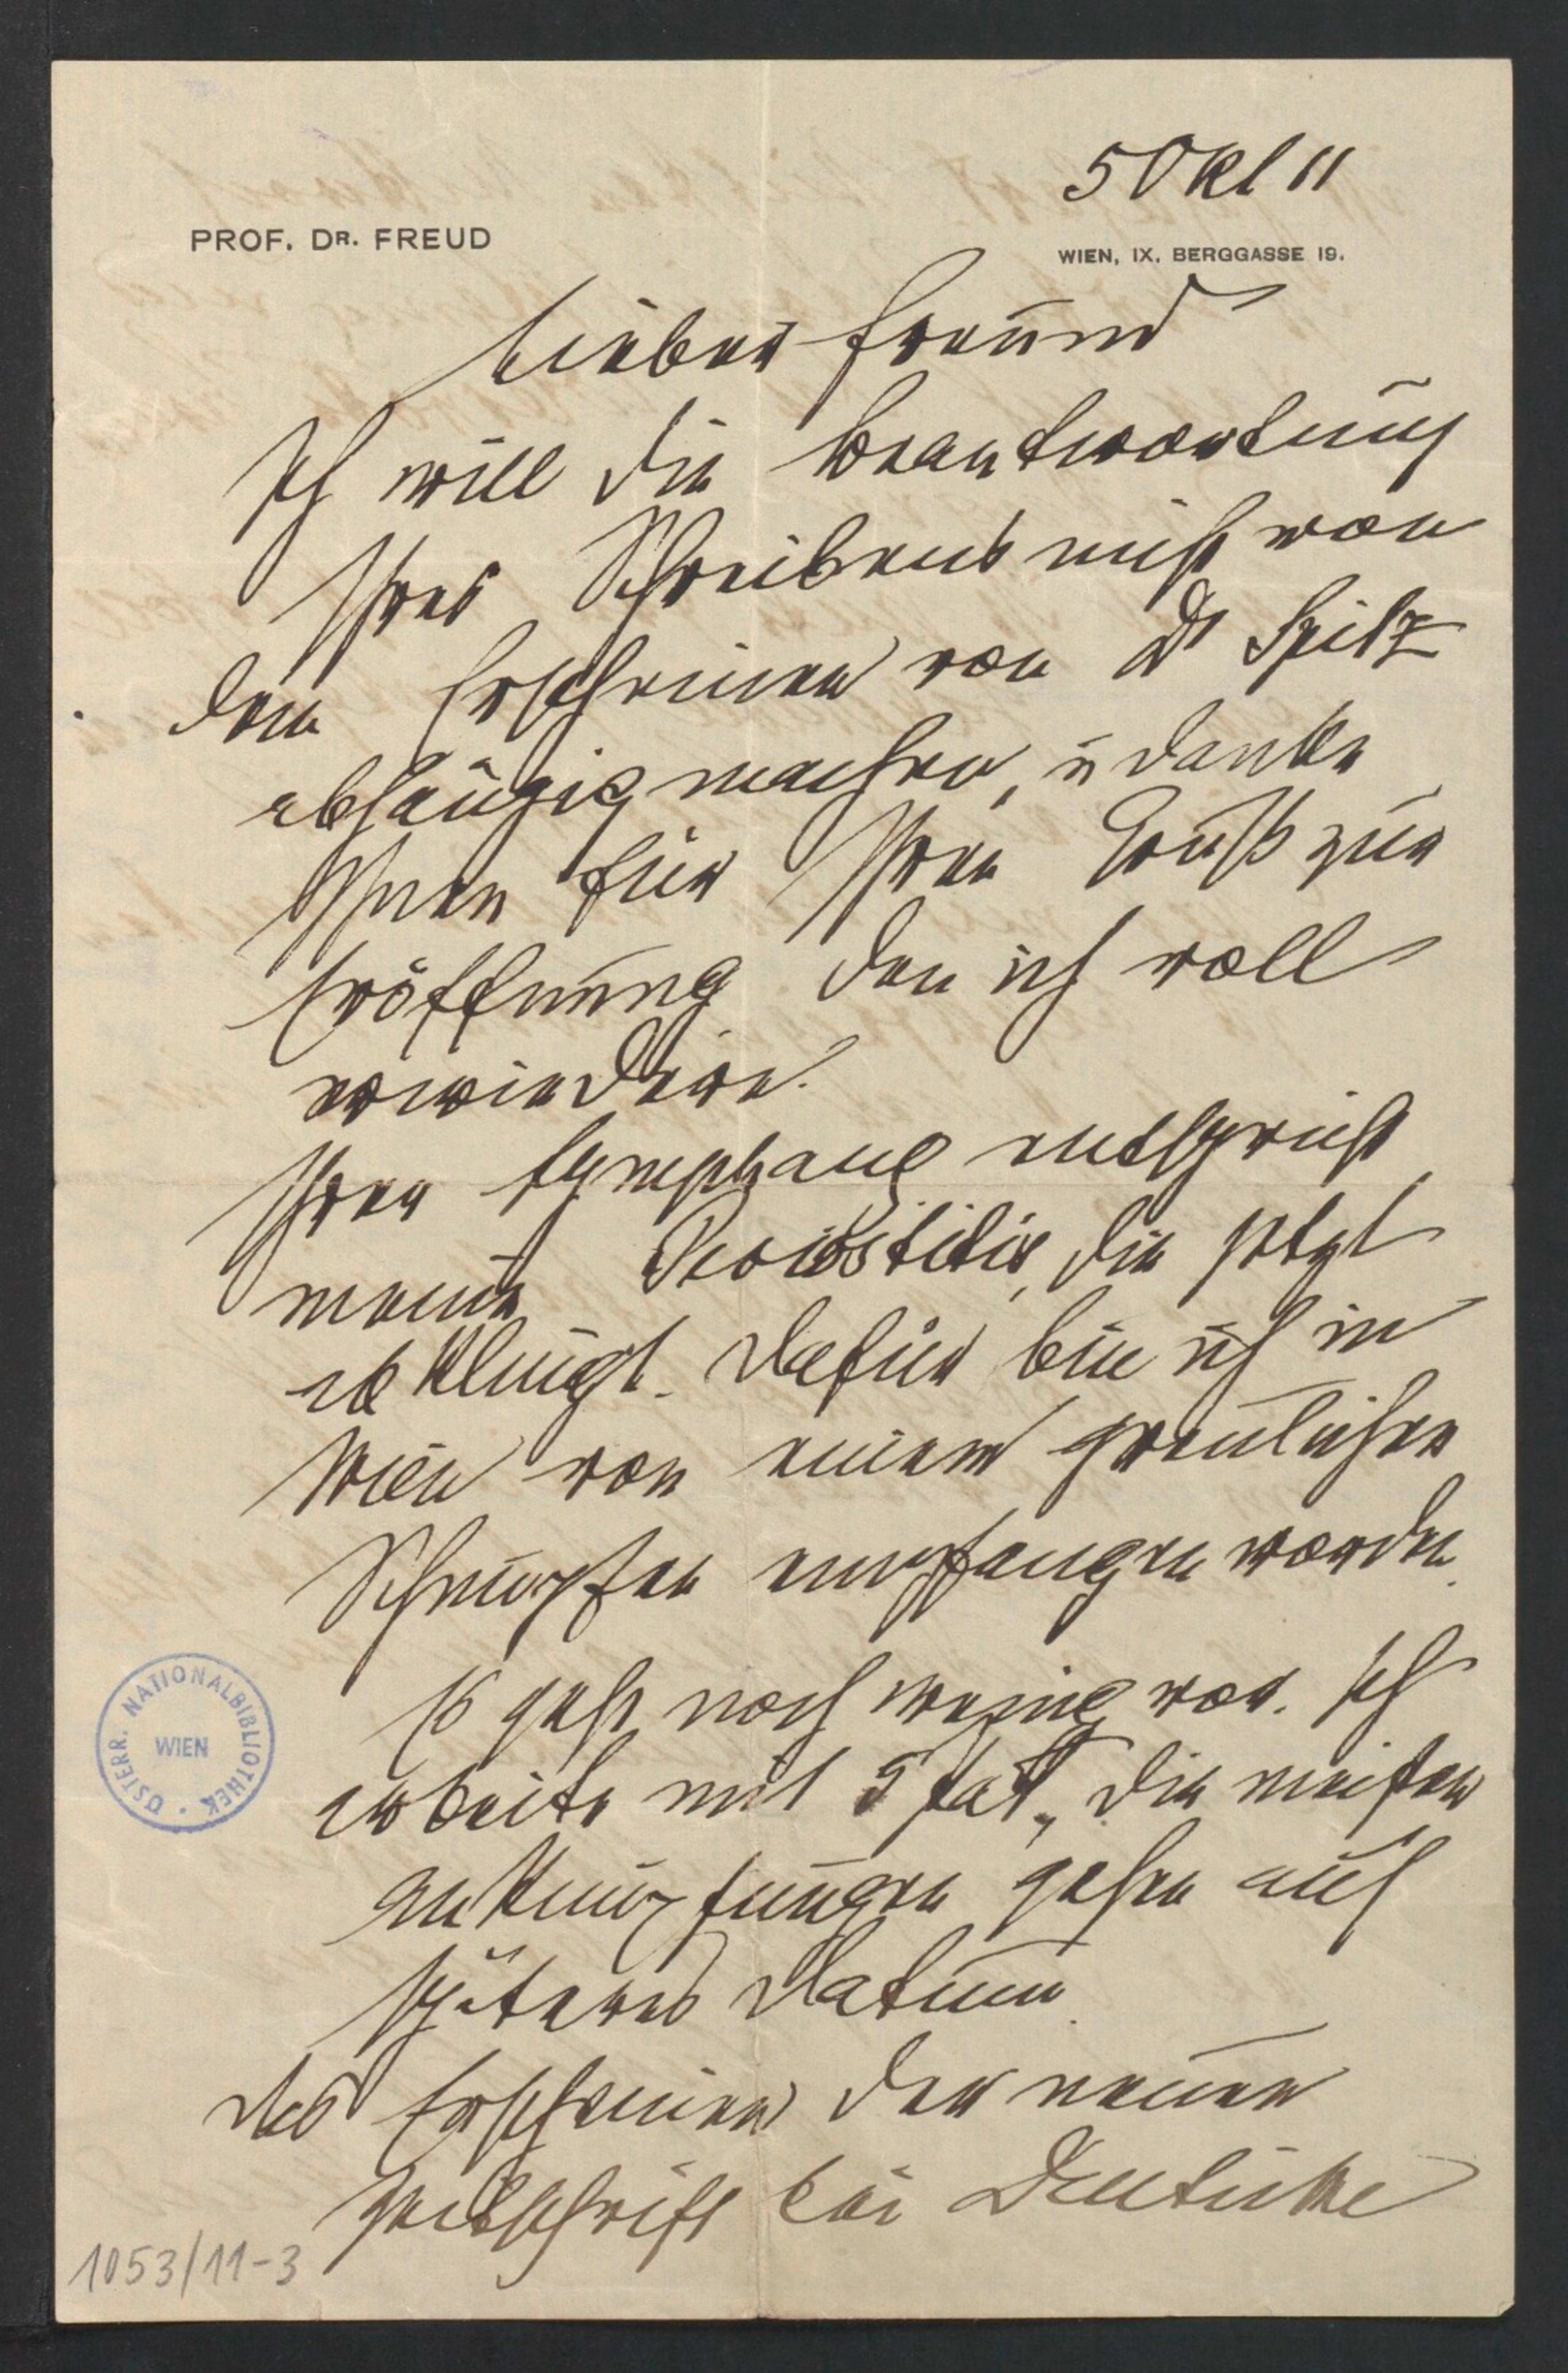 5 Okt 11
PROF. DR. FREUD
WIEN, IX. BERGGASSE 19.
Lieber Freund
Ich will die Beantwortung
Ihres Schreibens nicht von
dem Erscheinen von Dr Spitz
abhängig machen, u danke
Ihnen für Ihren Gruß zur
Eröffnung den ich voll
erwiedere.
Ihrer Lymphang entspricht
meine Periostitis, die jetzt
abklingt. Dafür bin ich in
Wien von einem greulichen
Schnupfen empfangen worden.
Es geht noch wenig vor. Ich
arbeite mit 5 Pat., die meisten
Anknüpfungen gehen auf
späteres Datum.
Das Erscheinen der neuen
Zeitschrift bei Deuticke
ÖSTERR. NATIONALBIBLIOTHEK
WIEN
1053/11-3